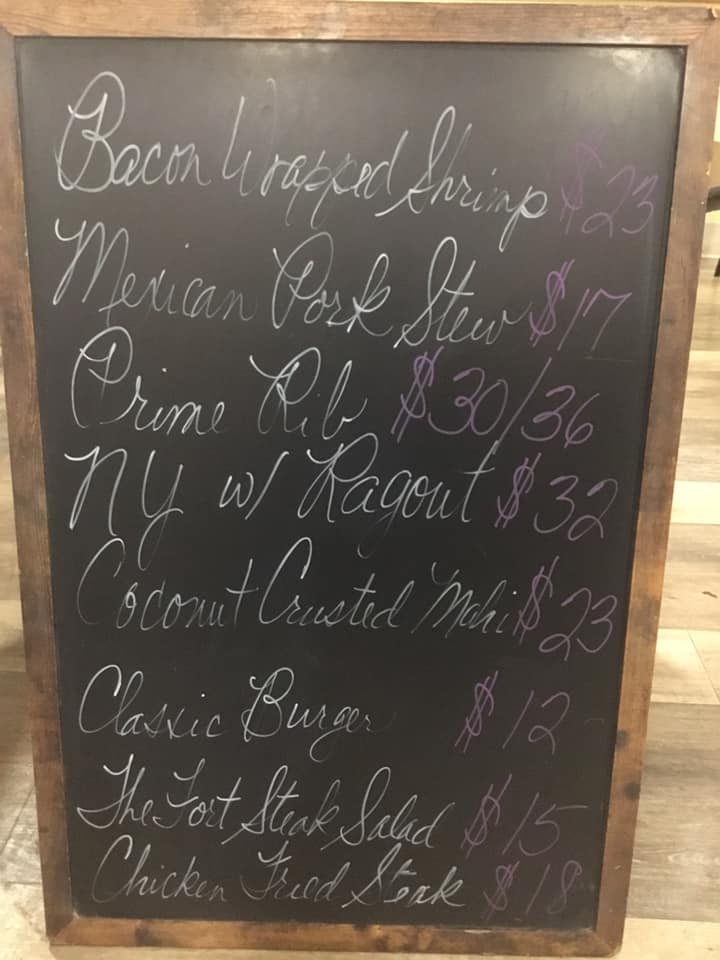 Bacon Wrapped Shrimp $23
Mexican Pork Stew $17
Prime Rib $30/36
NY w/ Ragout $32
Coconut Crusted Mahi $23
Classic Burger $12
The Fort Steak Salad $15
Chicken Fried Steak $18